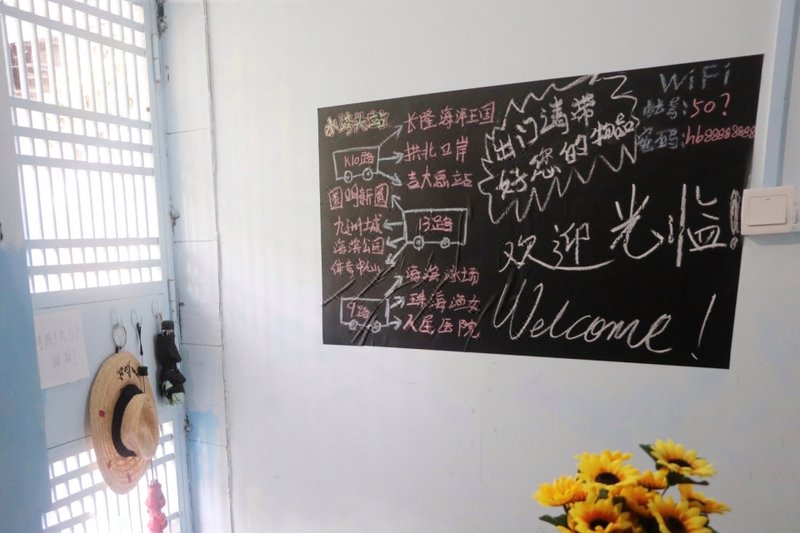 小湾头站
K10路
长隆海洋王国
拱北口岸
吉大总站
圆明新園
13路
九洲城
海滨公园
体育中心
9路
海滨泳场
珠海渔女
人民医院
出门请带
好您的物品
WiFi
账号:50?
密码:hb88888888
欢迎光临!
Welcome!